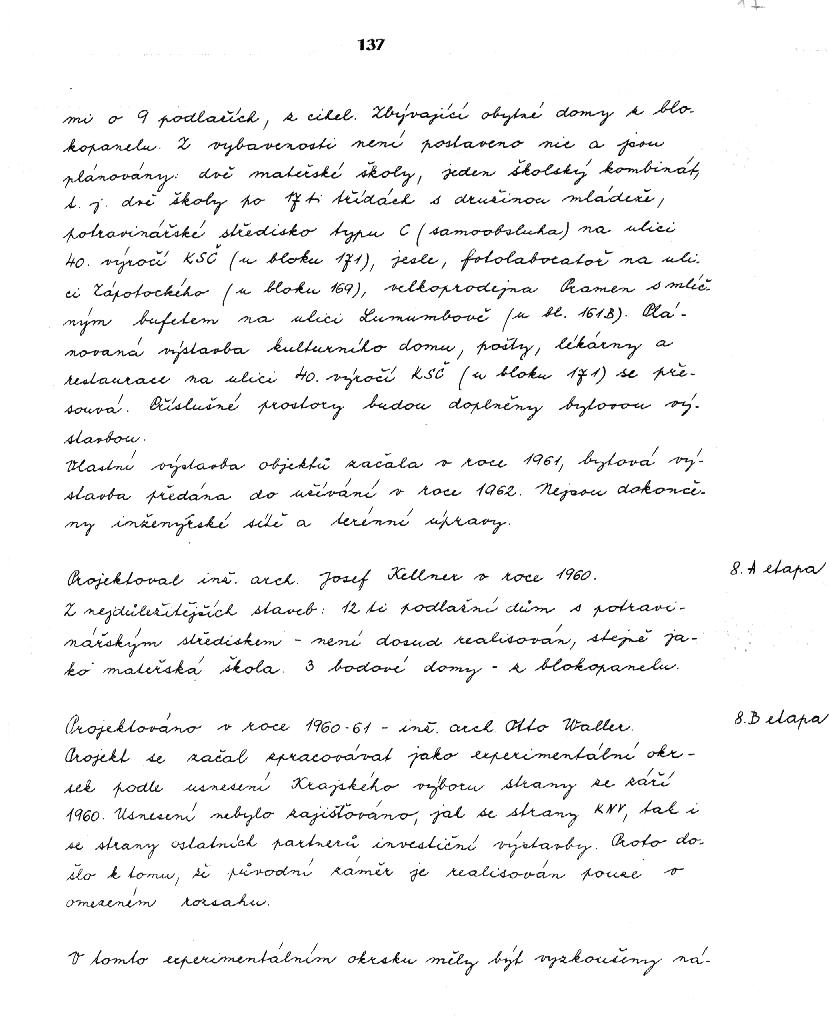 17
137
mi o 9 podlažích, z cihel. Zbývající obytné domy z blo-
kopanelu. Z vybavenosti není postaveno nic a jsou
plánovány: dvě mateřské školy, jeden školský kombinát,
t. j. dvě školy po 17 ti třídách s družinou mládeže,
potravinářské středisko typu C (samoobsluha) na ulici
40. výročí KSČ (u bloku 171), jesle, fotolaboratoř na uli-
ci Zápotockého (u bloku 169), velkoprodejna Pramen s mléč-
ným bufetem na ulici Lumumbově (u bl. 161B). Plá-
novaná výstavba kulturního domu, pošty, lékárny a
restaurace na ulici 40. výročí KSČ (u bloku 171) se pře-
souvá. Příslušné prostory budou doplněny bytovou vý-
stavbou.
Vlastní výstavba objektů začala v roce 1961, bytová vý-
stavba předána do užívání v roce 1962. Nejsou dokonče-
ny inženýrské sítě a terénní úpravy.
Projektoval inž. arch. Josef Kellner v roce 1960.
8. A etapa
Z nejdůležitějších staveb: 12 ti podlažní dům s potravi-
nářským střediskem - není dosud realisován, stejně ja-
ko mateřská škola. 3 bodové domy - z blokopanelu.
Projektováno v roce 1960-61 - inž. arch Otto Waller.
8. B etapa
Projekt se začal zpracovávat jako experimentální okr-
sek podle usnesení Krajského výboru strany ze září
1960. Usnesení nebylo zajišťováno, jak se strany KNV, tak i
se strany ostatních partnerů investiční výstavby. Proto do-
šlo k tomu, že původní záměr je realisován pouze v
omezeném rozsahu.
V tomto experimentálním okrsku měly být vyzkoušeny ná-